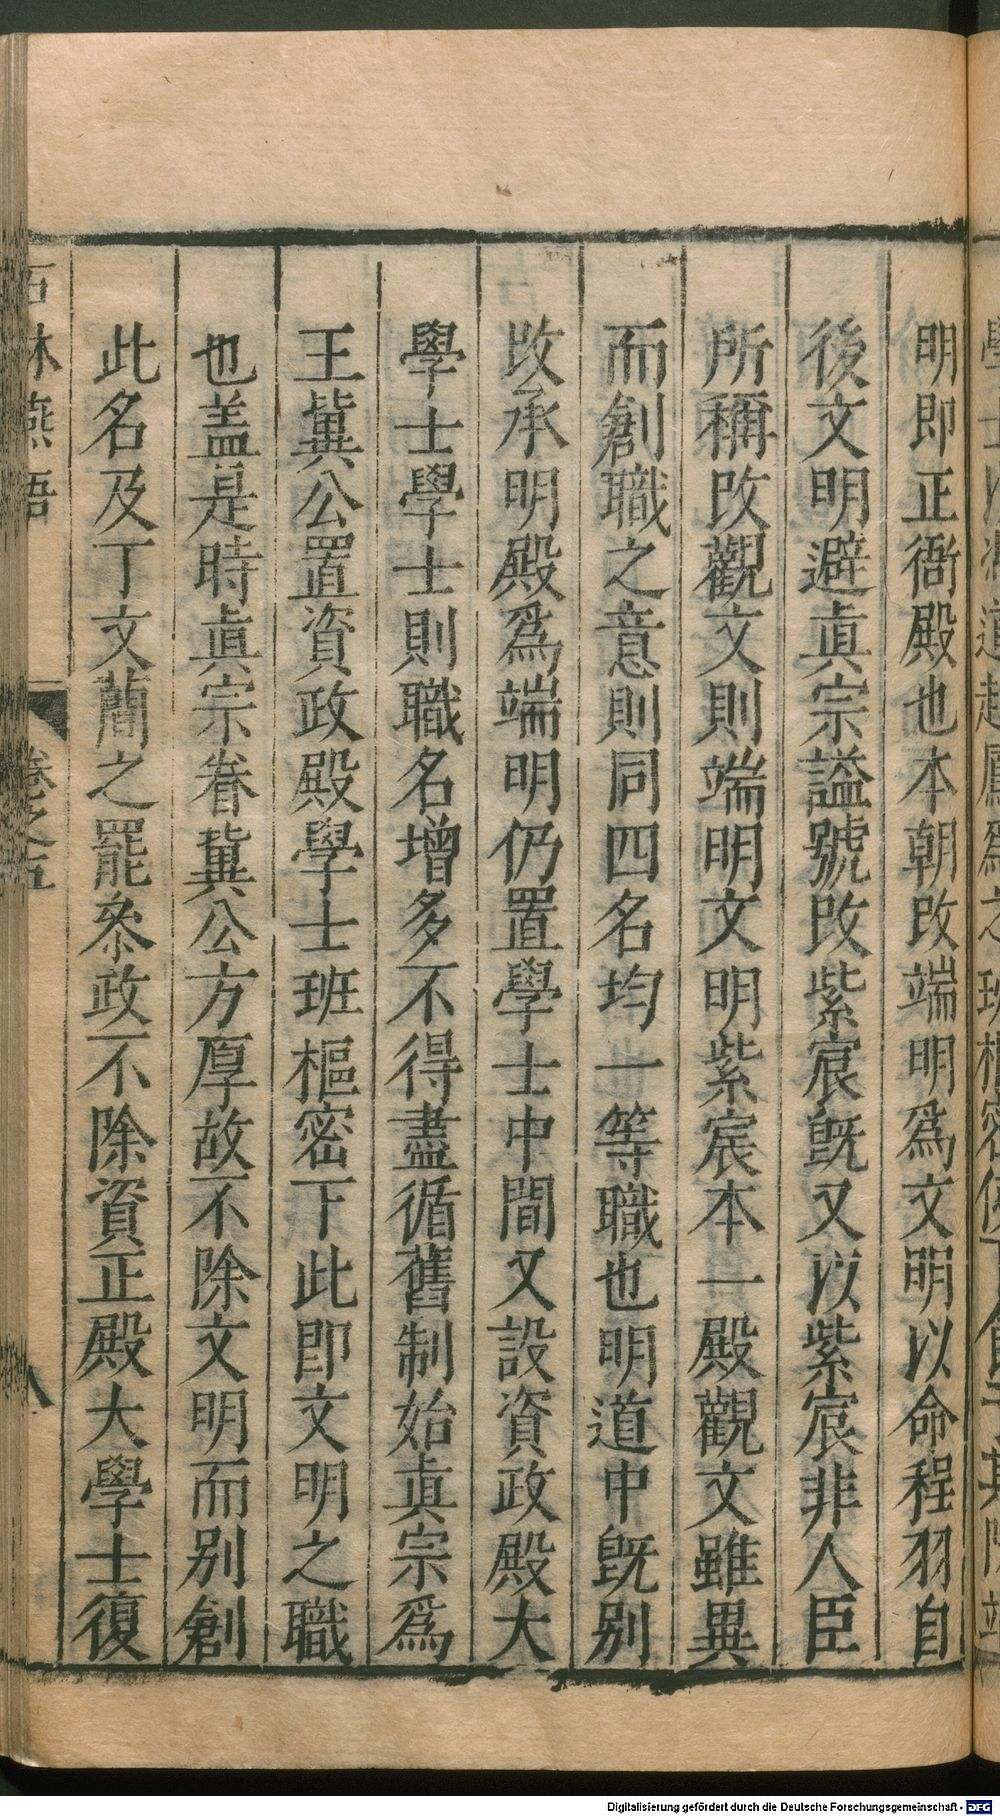 明即正衙殿也本朝改端明爲文明以命程羽自
後文明避眞宗謚號改紫宸旣又以紫宸非人臣
所稱改觀文則端明文明紫宸本一殿觀文雖異
而創職之意則同四名均一等職也明道中旣别
改承明殿爲端明仍置學士中間又設資政殿大
學士學士則職名增多不得盡循舊制始眞宗爲
王冀公置資政殿學士班樞密下此即文明之職
也盖是時眞宗眷冀公方厚故不除文明而别創
此名及丁文簡之罷叅政不除資正殿大學士復
石林燕語 卷之五 八
Digitalisierung gefördert durch die Deutsche Forschungsgemeinschaft - DFG